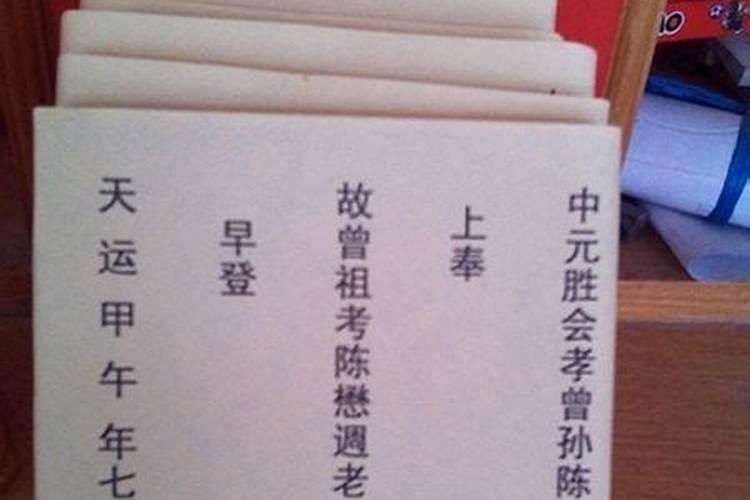 中元胜会孝曾孙陈
上奉
故曾祖考陈懋週老
早登
天运甲午年七